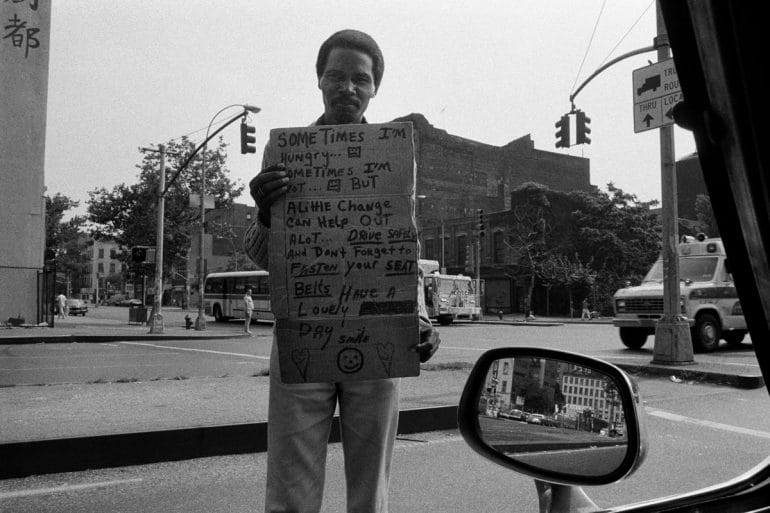 都
SOME TIMES I'M
HUNGRY...
SOMETIMES I'M
NOT... BUT
A little Change
CAN Help OUT
ALOT... DRIVE SAFELY
And Don't Forget to
FASTEN your SEAT
Belts HAVE A
Lovely
DAY smile
TRU
ROU
THRU LOCA